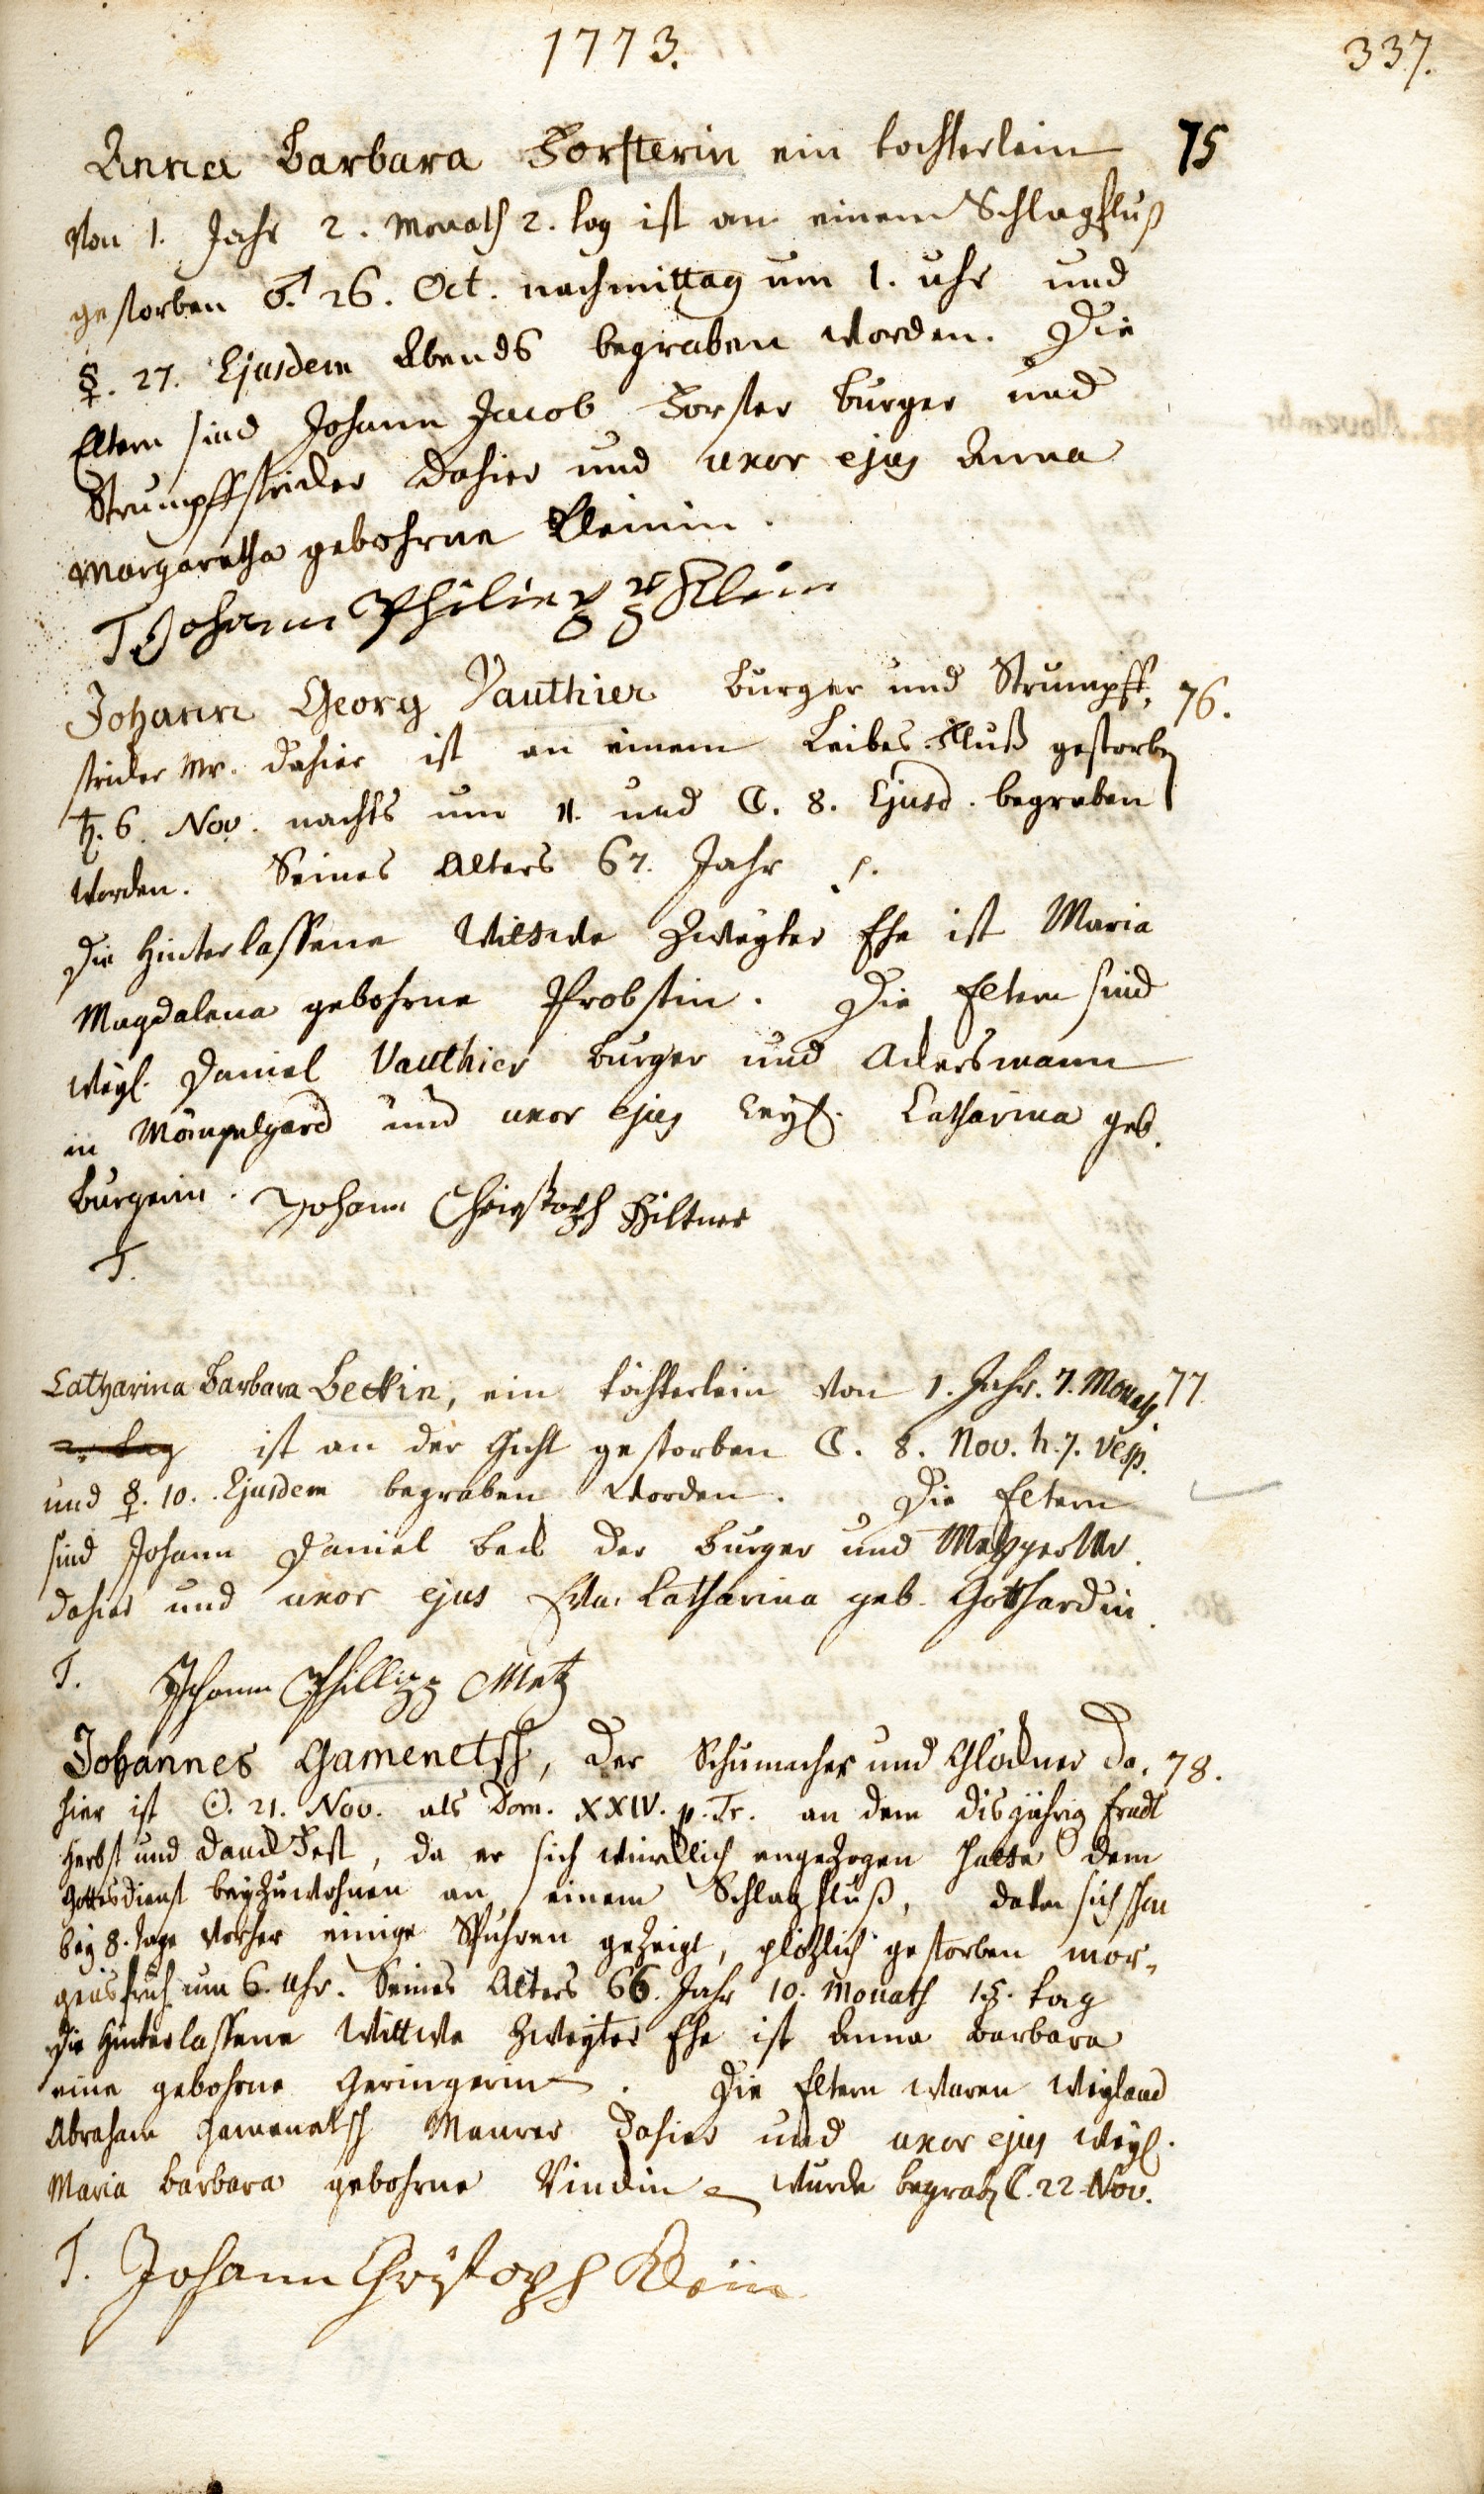 1773.
337.
Anna Barbara Forsterin ein tochterlein 75
von 1. Jahr 2. Monath 2. tag ist an einem Schlagfluß
gestorben ♂. 26. Oct. nachmittag um 1. uhr und
☿. 27. Ejusdem Abends begraben worden. Die
Eltern sind Johann Jacob Forster burger und
Strumpffstricker dahier und uxor ejus Anna
Margaretha gebohrne Kleinin.
T Johann Philipp Klein
Johann Georg Vauthier burger und Strumpff, 76.
stricker Mr. dahier ist an einem Leibes-Fluß gestorben
♄. 6. Nov. nachts um 11. und ☾. 8. Ejusd. begraben
worden. Seines Alters 67. Jahr
Die Hinterlassene Wittwe Zweyter Ehe ist Maria
Magdalena gebohrne Probstin. Die Eltern sind
weyl. Daniel Vauthier burger und Ackersmann
in Mömpelgard und uxor ejus weyl. Catharina geb.
Burgerin. Johann Christoph Hiltner
T.
Catharina Barbara Beckin, ein töchterlein von 1. Jahr. 7. Monath. 77
2. tag ist an der Gicht gestorben ☾. 8. Nov. h. 7. vesp.
und ☿. 10. Ejusdem begraben worden. Die Eltern
sind Johann Daniel Beck der burger und Metzger Mr.
dahier und uxor ejus Eva Catharina geb. Gotthardin.
T. Johann Phillipp Metz
Johannes Gamenetsch, der Schumacher und Glöckner da, 78.
hier ist ☉. 21. Nov. als Dom. XXIV. p. Tr. an dem disjährig Erndt
Herbst und Danck Fest, da er sich würcklich angezogen hatte dem
Gottesdienst beyzuwohnen an einem Schlagfluß, davon sich schon
bey 8. Tage vorher einige Spuhren gezeigt, plötzlich gestorben mor,
gens fruh um 6. Uhr. Seines Alters 66. Jahr 10. Monath 15. tag
Die Hinterlassene Wittwe Zweyter Ehe ist Anna Barbara
eine gebohrne Geringerin. Die Eltern waren weyland
Abraham Gamenetsch Maurer dahier und uxor ejus weyl.
Maria Barbara gebohrne Vindin wurde begraben ☾. 22 Nov.
T. Johann Christoph Klein